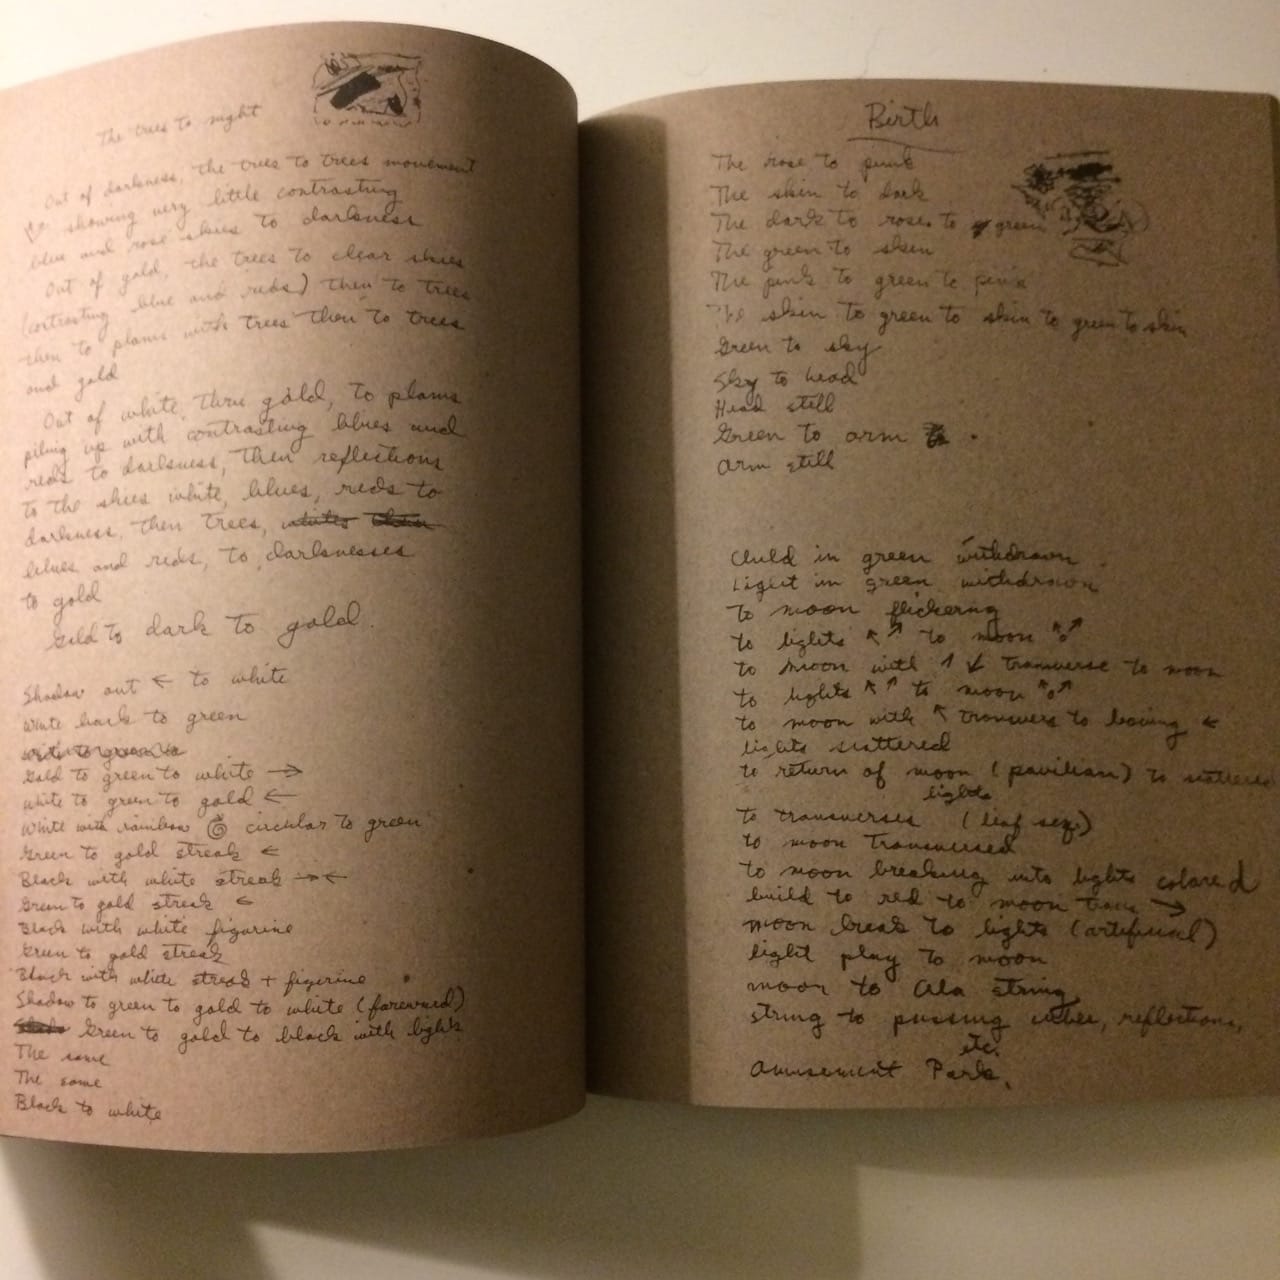 The trees to night
Out of darkness, the trees to trees movement
showing very little contrasting
blue and rose skies to darkness
Out of gold, the trees to clear skies
(contrasting blue and reds) then to trees
then to plams with trees then to trees
and gold
Out of white, thru gold, to plams
piling up with contrasting blues and
reds to darkness, then reflections
to the skies white, blues, reds to
darkness, then trees,
blues and reds, to darknesses
to gold
Gold to dark to gold.
Shadow out ← to white
White back to green
Gold to green to white →
White to green to gold ←
White with rainbow circular to green
Green to gold streak ←
Black with white streak →←
Green to gold streak ←
Black with white figurine
Green to gold streak
Black with white streak + figurine
Shadow to green to gold to white (foreward)
Green to gold to black with lights
The same
The same
Black to white
Birth
The rose to pink
The skin to dark
The dark to rose to green
The green to skin
The pink to green to pink
The skin to green to skin to green to skin
Green to sky
Sky to head
Head still
Green to arm .
Arm still
Child in green withdrawn
Light in green withdrawn
to moon flickering
to lights ↖ ↗ to moon ↖o↗
to moon with ↑ ↙ transverse to moon
to lights ↖ ↗ to moon ↖o↗
to moon with ↖ transvers to ←
lights scattered
to return of moon (pavilian) to scattered
lights
to transverses (leaf seq.)
to moon transversed
to moon breaking into lights colored
build to red to moon trans →
moon break to lights (artificial)
light play to moon
moon to string
string to passing reflections,
etc.
Amusement Park.